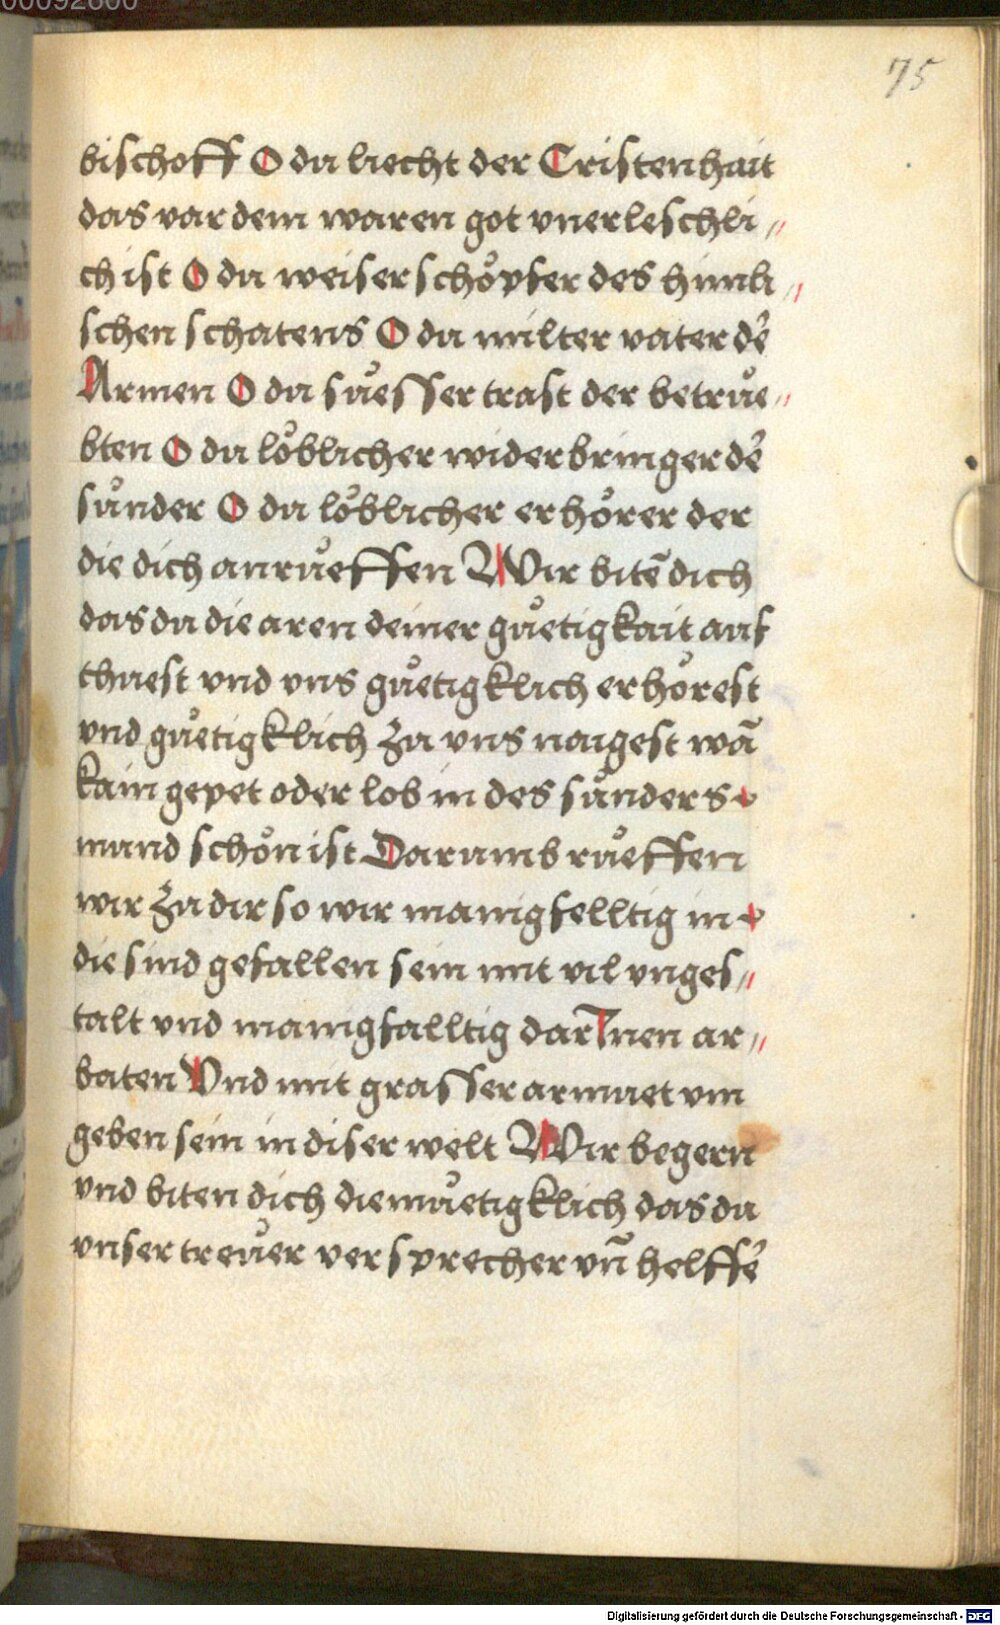 00092800
75
bischoff O du liecht der Cristenhait
das var dem waren got vnerleschli〃
ch ist O du weiser schöpfer des himli〃
schen schatens O du milter vater dẽ
Armen O du sůesser trast der betrůe〃
bten O du löblicher widerbringer dẽ
sůnder O du löblicher erhörer der
die dich anrůeffen Wir bitẽ dich
das du die aren deiner gůetigkait auf
thuest vnd vns gůetigklich erhörest
vnd gůetigklich zu vns naigest wã
kain gepet oder lob in des sůnders
mund schön ist Darumb růeffen
wir zu dir so wir manigfelltig in
die sind gefallen sein mit vil vnges〃
talt vnd manigfalltig darInen ar〃
baten Vnd mit grasser armuet vm
geben sein in diser welt Wir begern
vnd biten dich diemůetigklich das du
vnser treůer versprecher vñ helffẽ
Digitalisierung gefördert durch die Deutsche Forschungsgemeinschaft - DFG